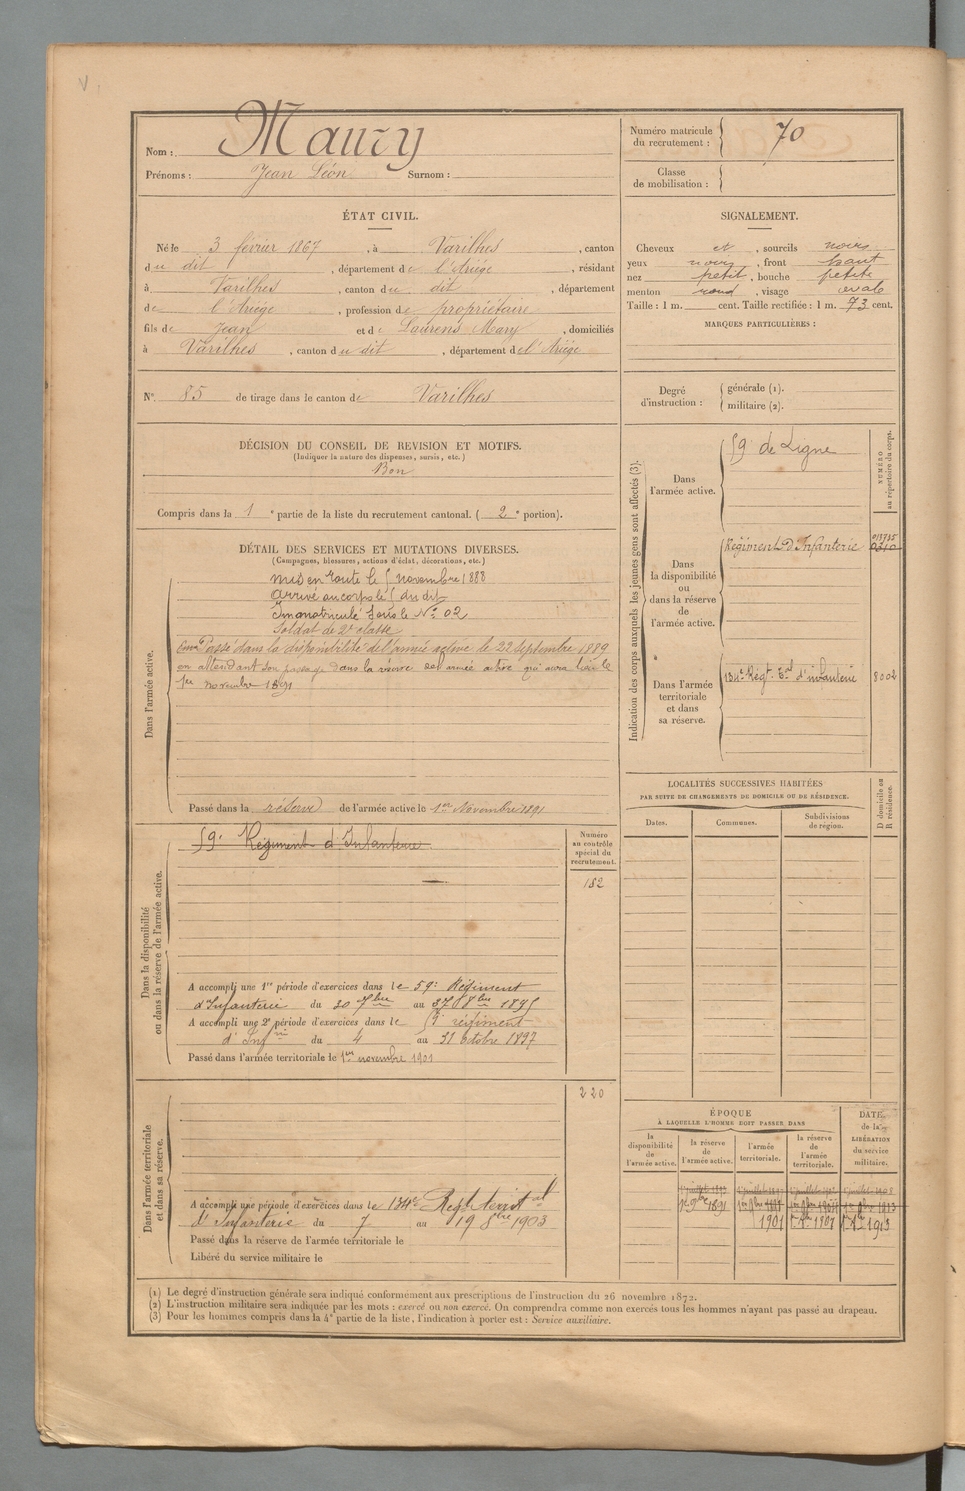 Nom : Maury
Prénoms : Jean Léon Surnom :
Numéro matricule du recrutement : 70
Classe de mobilisation :
ÉTAT CIVIL.
Né le 3 février 1867, à Varilhes, canton
du dit, département de l'Ariège, résidant
à Varilhes, canton du dit, département
de l'Ariège, profession de propriétaire
fils de Jean et de Laurens Mary, domiciliés
à Varilhes, canton du dit, département de l'Ariège
N° 85 de tirage dans le canton de Varilhes
SIGNALEMENT.
Cheveux et, sourcils noirs
yeux noirs, front haut
nez petit, bouche petite
menton rond, visage ovale
Taille : 1 m. cent. Taille rectifiée : 1 m. 73 cent.
MARQUES PARTICULIÈRES :
Degré d'instruction :
générale (1).
militaire (2).
DÉCISION DU CONSEIL DE REVISION ET MOTIFS.
(Indiquer la nature des dispenses, sursis, etc.)
Bon
Compris dans la 1e partie de la liste du recrutement cantonal. (2e portion).
DÉTAIL DES SERVICES ET MUTATIONS DIVERSES.
(Campagnes, blessures, actions d'éclat, décorations, etc.)
Dans l'armée active.
Mis en route le 5 novembre 1888
Arrivé au corps le 5 du dit
Immatriculé sous le N° 02
Soldat de 2e classe
Passé dans la disponibilité de l'armée active le 22 septembre 1889
en attendant son passage dans la réserve de l'armée active qui aura lieu le
1er novembre 1891
Passé dans la réserve de l'armée active le 1er Novembre 1891
Indication des corps auxquels les jeunes gens sont affectés (3).
NUMÉRO au répertoire du corps.
Dans l'armée active.
59 de Ligne
Dans la disponibilité ou dans la réserve de l'armée active.
Régiment d'Infanterie
Dans l'armée territoriale et dans sa réserve.
134e Régt. Tal d'infanterie 8002
LOCALITÉS SUCCESSIVES HABITÉES
PAR SUITE DE CHANGEMENTS DE DOMICILE OU DE RÉSIDENCE.
Dates. Communes. Subdivisions de région. D domicile ou R résidence.
Dans la disponibilité ou dans la réserve de l'armée active.
59e Régiment d'Infanterie
Numéro au contrôle spécial du recrutement.
182
A accompli une 1re période d'exercices dans le 59e Régiment
d'Infanterie du 30 7bre au 27 8bre 1895
A accompli une 2e période d'exercices dans le 59e régiment
d'Infrie du 4 au 31 octobre 1897
Passé dans l'armée territoriale le 1er novembre 1901
Dans l'armée territoriale et dans sa réserve.
220
A accompli une période d'exercices dans le 134e Regt territal
d'Infanterie du 7 au 19 8bre 1903
Passé dans la réserve de l'armée territoriale le
Libéré du service militaire le
ÉPOQUE
À LAQUELLE L'HOMME DOIT PASSER DANS
la disponibilité de l'armée active.
la réserve de l'armée active.
l'armée territoriale.
la réserve de l'armée territoriale.
DATE de la LIBÉRATION du service militaire.
1er 9bre 1891
1901 1er 9bre 1907 1er 9bre 1913
(1) Le degré d'instruction générale sera indiqué conformément aux prescriptions de l'instruction du 26 novembre 1872.
(2) L'instruction militaire sera indiquée par les mots : exercé ou non exercé. On comprendra comme non exercés tous les hommes n'ayant pas passé au drapeau.
(3) Pour les hommes compris dans la 4e partie de la liste, l'indication à porter est : Service auxiliaire.